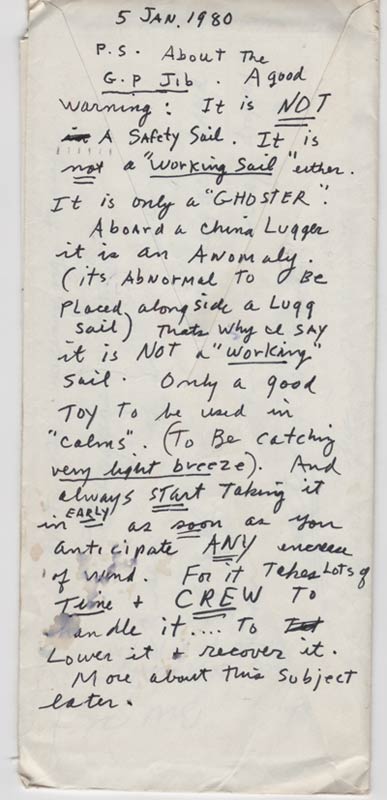 5 JAN. 1980
P.S. About the
G.P Jib. A good
warning: It is NOT
in A Safety Sail. It is
not a "Working Sail" either.
It is only a "GHOSTER".
Aboard a China Lugger
it is an ANOMALY.
(its ABNORMAL TO BE
placed, along side a Lugg
sail) Thats why I SAY
it is NOT a "working"
sail. Only a good
TOY To be used in
"calms". (To Be catching
very light breeze). And
always START Taking it
in EARLY as soon as you
anticipate ANY increase
of wind. For it Takes Lots of
Time + CREW TO
handle it.... To
Lower it + recover it.
More about this Subject
later.